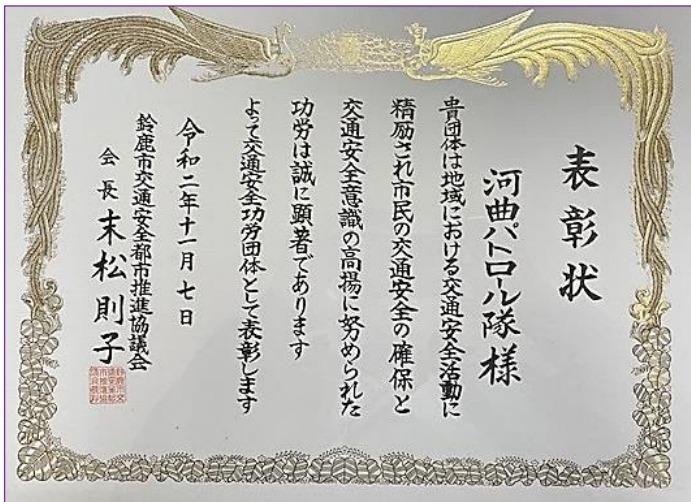 表彰状
河曲パトロール隊様
貴団体は地域における交通安全活動に
精励され市民の交通安全の確保と
交通安全意識の高揚に努められた
功労は誠に顕著であります
よって交通安全功労団体として表彰します
令和二年十一月七日
鈴鹿市交通安全都市推進協議会
会長 末松則子